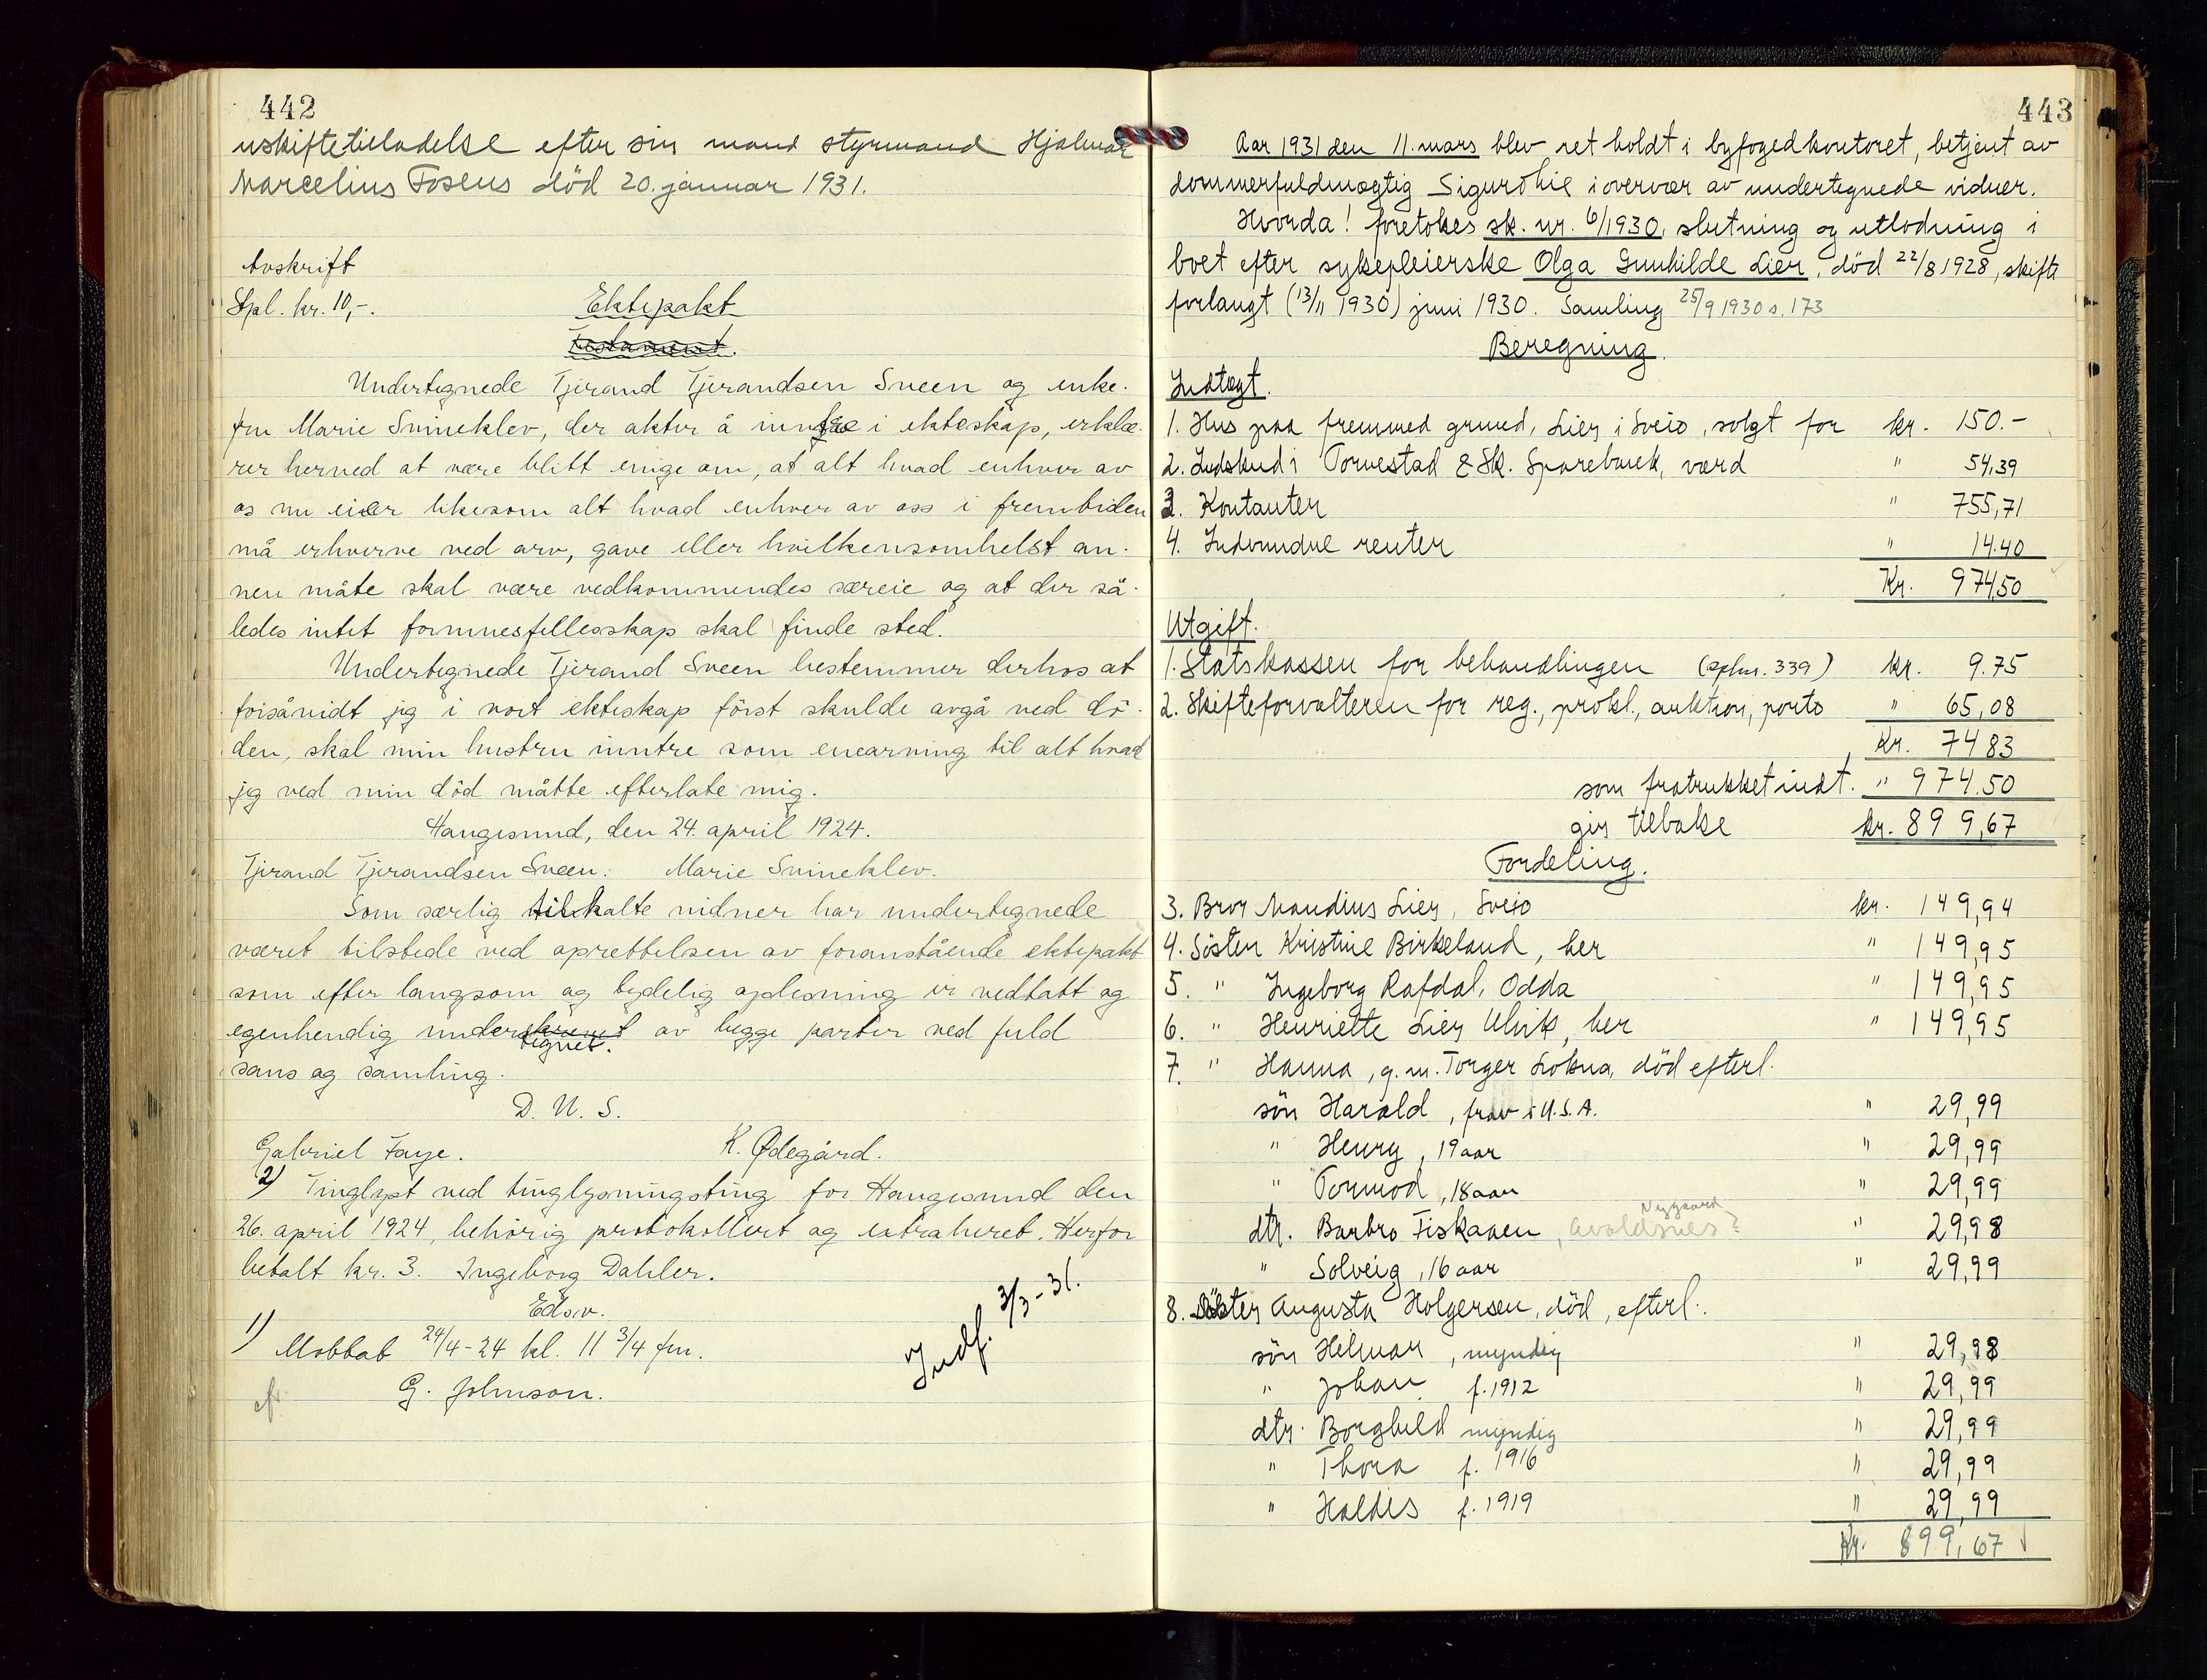 442
uskiftetilladelse efter sin mand styrmand Hjalmar
Marcelius Fosens död 20. januar 1931.
Avskrift
Stpl. kr. 10,-. Ektepakt
Testament.
Undertegnede Tjerand Tjerandsen Sveen og enke-
fru Marie Svineklev, der akter å inngåe i ekteskap, erklæ-
rer herved at være blitt enige om, at alt hvad enhver av
os nu eier likesom alt hvad enhver av oss i fremtiden
må erhverve ved arv, gave eller hvilkensomhelst an-
nen måte skal være vedkommendes særeie og at der så-
ledes intet formuesfellesskap skal finde sted.
Undertegnede Tjerand Sveen bestemmer derhos at
forsåvidt jeg i vort ekteskap först skulde avgå ved dö-
den, skal min hustru inntre som enearving til alt hvad
jeg ved min död måtte efterlate mig.
Haugesund, den 24. april 1924.
Tjerand Tjerandsen Sveen. Marie Svineklev.
Som særlig tilkalte vidner har undertegnede
været tilstede ved oprettelsen av foranstående ektepakt
som efter langsom og tydelig oplesning er vedtatt og
egenhendig underskrevet av begge parter ved fuld
tegnet.
sans og samling.
D. U. S.
Gabriel Faye. K. Ødegård.
2) Tinglyst ved tinglysningsting for Haugesund den
26. april 1924, behörig protokollert og extraheret. Herfor
betalt kr. 3. Ingeborg Dahler.
Edsv.
1) Mottat 24/4-24 kl. 11 3/4 fm.
G. Johnson.
Indf. 3/3-31.
443
Aar 1931 den 11. mars blev ret holdt i byfogedkontoret, betjent av
dommerfuldmægtig Sigurd Lie i overvær av undertegnede vidner.
Hvorda! foretokes sk. nr. 6/1930, slutning og utlodning i
boet efter sykepleierske Olga Gunhilde Lier, död 22/8 1928, skifte
forlangt (13/11 1930) juni 1930. Samling 25/9 1930 s. 173
Beregning.
Indtægt.
1. Hus paa fremmed grund, Lier i Sveio, solgt for kr. 150.-
2. Indskud i Torvestad & Sk. Sparebank, værd " 54,39
3. Kontanter " 755,71
4. Indvundne renter " 14.40
Kr. 974,50
Utgift.
1. Statskassen for behandlingen (339) kr. 9.75
2. Skifteforvalteren for reg., prokl., auktion, porto " 65,08
Kr. 7483
som fratrukket indt. " 974.50
gir tilbake kr. 899,67
Fordeling.
3. Bror Maudius Lier, Sveio kr. 149,94
4. Söster Kristine Birkeland, her " 149,95
5. " Ingeborg Rafdal, Odda " 149,95
6. " Henriette Lier Ulvik, her " 149,95
7. " Hanna, g. m. Torger Lokna, död efterl.
sön Harald, frav i U.S.A. " 29,99
" Henry, 19 aar " 29,99
" Tormod, 18 aar " 29,99
Nygaard
dtr. Barbro Fiskaaen, Avaldsnes? " 29,98
" Solveig, 16 aar " 29,99
8. Söster Augusta Holgersen, död, efterl.
sön Helmar, myndig " 29,98
" Johan f. 1912 " 29,99
dtr. Borghild myndig " 29,99
" Thora f. 1916 " 29,99
" Haldis f. 1919 " 29,99
Kr. 899,67